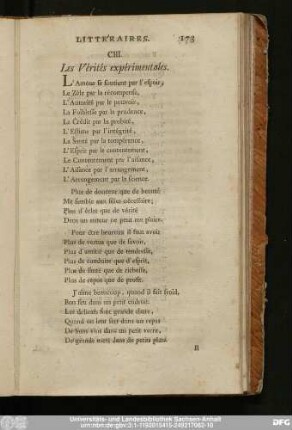 LITTÉRAIRES. 173
CIII.
Les Vérités expérimentales.
L'Amour se soutient par l'espoir,
Le Zèle par la récompense,
L'Autorité par le pouvoir,
La Foiblesse par la prudence,
Le Crédit par la probité,
L'Estime par l'intégrité,
La Santé par la tempérance,
L'Esprit par le contentement,
Le Contentement par l'aisance,
L'Aisance par l'arrangement,
L'Arrangement par la science.
Plus de douceur que de beauté
Me semble aux filles nécessaire;
Plus d'éclat que de vérité
Dans un auteur ne peut me plaire.
Pour être heureux il faut avoir
Plus de vertus que de savoir,
Plus d'amitié que de tendresse,
Plus de conduite que d'esprit,
Plus de santé que de richesse,
Plus de repos que de profit.
J'aime beaucoup, quand il fait froid,
Bon feu dans un petit endroit.
Les défauts sans grande
Quand on leur sert dans un repas
De bon vin dans un petit verre,
De grands mets dans de petits plats
Universitäts- und Landesbibliothek Sachsen-Anhalt
urn:nbn:de:gbv:3:1-1192015415-249217062-10
DFG